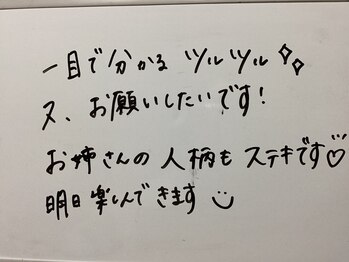 一目で分かる ツルツル✧✧
又、お願いしたいです！
お姉さんの人柄も ステキです♡
明日楽しんできます ☺